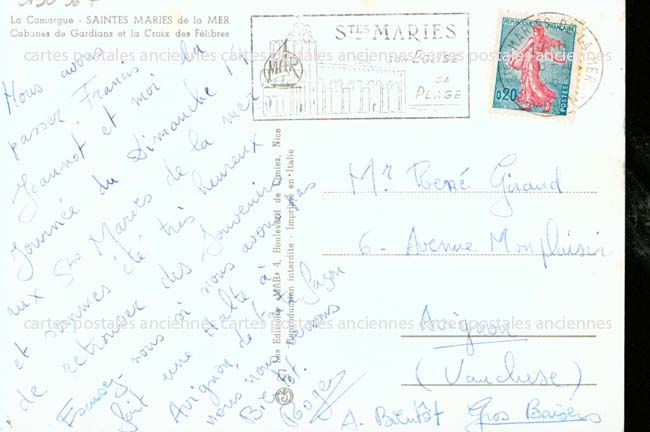 La Camargue - SAINTES MARIES de la MER
Cabanes de Gardians et la Croix des Félibres
Nous avons
passer Francis
Jeannot et moi la
Journée du Dimanche 14
aux Stes Maries de la mer
et sommes été très heureux
de retrouver des Souvenirs
Excusez-nous si nous avons pas
fait une Halte à
Avignon, de
nous nous
Bientôt
Roger
STES MARIES
SON EGLISE
SA
PLAGE
MAR
REPUBLIQUE FRANCAISE
0,20
POSTES
MARIES DE LA MER
Les Editions "MAR" 4, Boulevard de Cimiez, Nice
Reproduction interdite - Imprimé en Italie
Mr René Giraud
6 - Avenue Monplaisir
Avignon
(Vaucluse)
A. Bientôt Gros Baisers
cartes postales anciennes cartes postales anciennes cartes postales anciennes
cartes postales anciennes cartes postales anciennes cartes postales anciennes